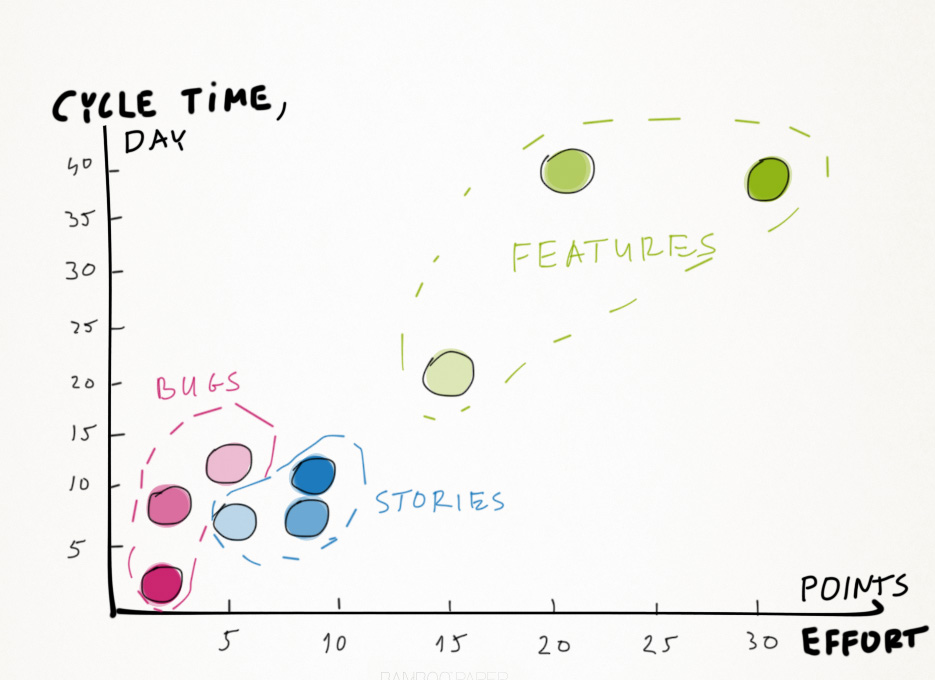 CYCLE TIME,
DAY
40
35
30
25
20
15
10
5
FEATURES
BUGS
STORIES
POINTS
5 10 15 20 25 30 EFFORT